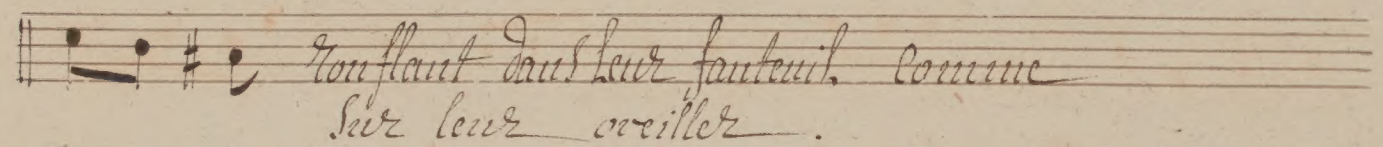 ronflant dans leur fauteuil comme
sur leur oreiller.